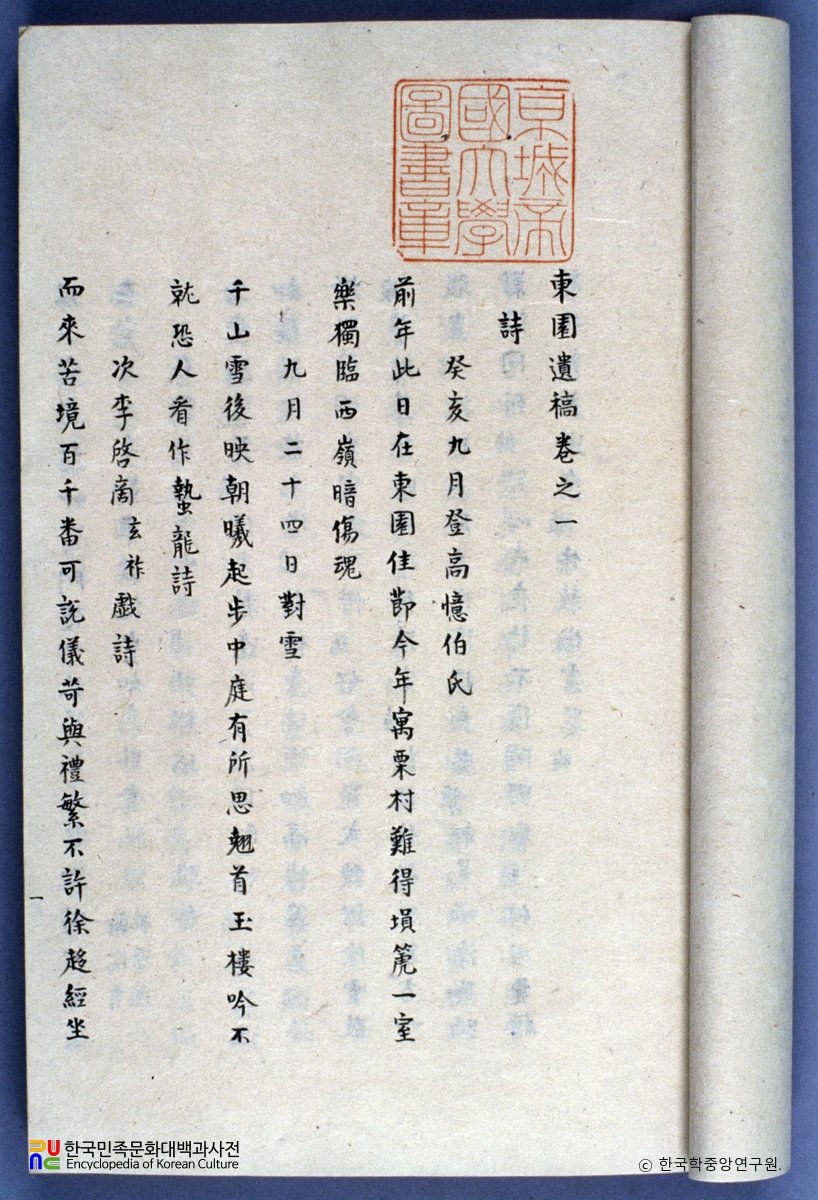 京城帝
國大學
圖書章
東園遺稿卷之一
詩
癸亥九月登高憶伯氏
前年此日在東園佳節今年寓栗村難得塤篪一室
樂獨臨西嶺暗傷魂
九月二十四日對雪
千山雪後映朝曦起步中庭有所思翹首玉樓吟不
就恐人看作蟄龍詩
次李啓商玄祚戱詩
而來苦境百千番可說儀苛與禮繁不許徐趍經坐
一
한국민족문화대백과사전
Encyclopedia of Korean Culture
© 한국학중앙연구원.